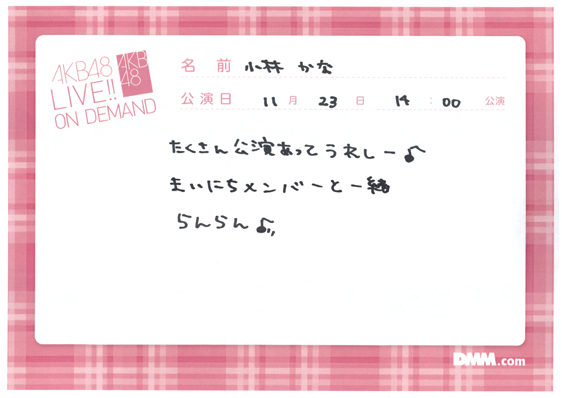 AKB48
LIVE!!
ON DEMAND
AKB
48
名前 小林 かな
公演日 11月 23日 14:00 公演
たくさん公演あってうれしー♪
まいにちメンバーと一緒
らんらん♪
DMM.com